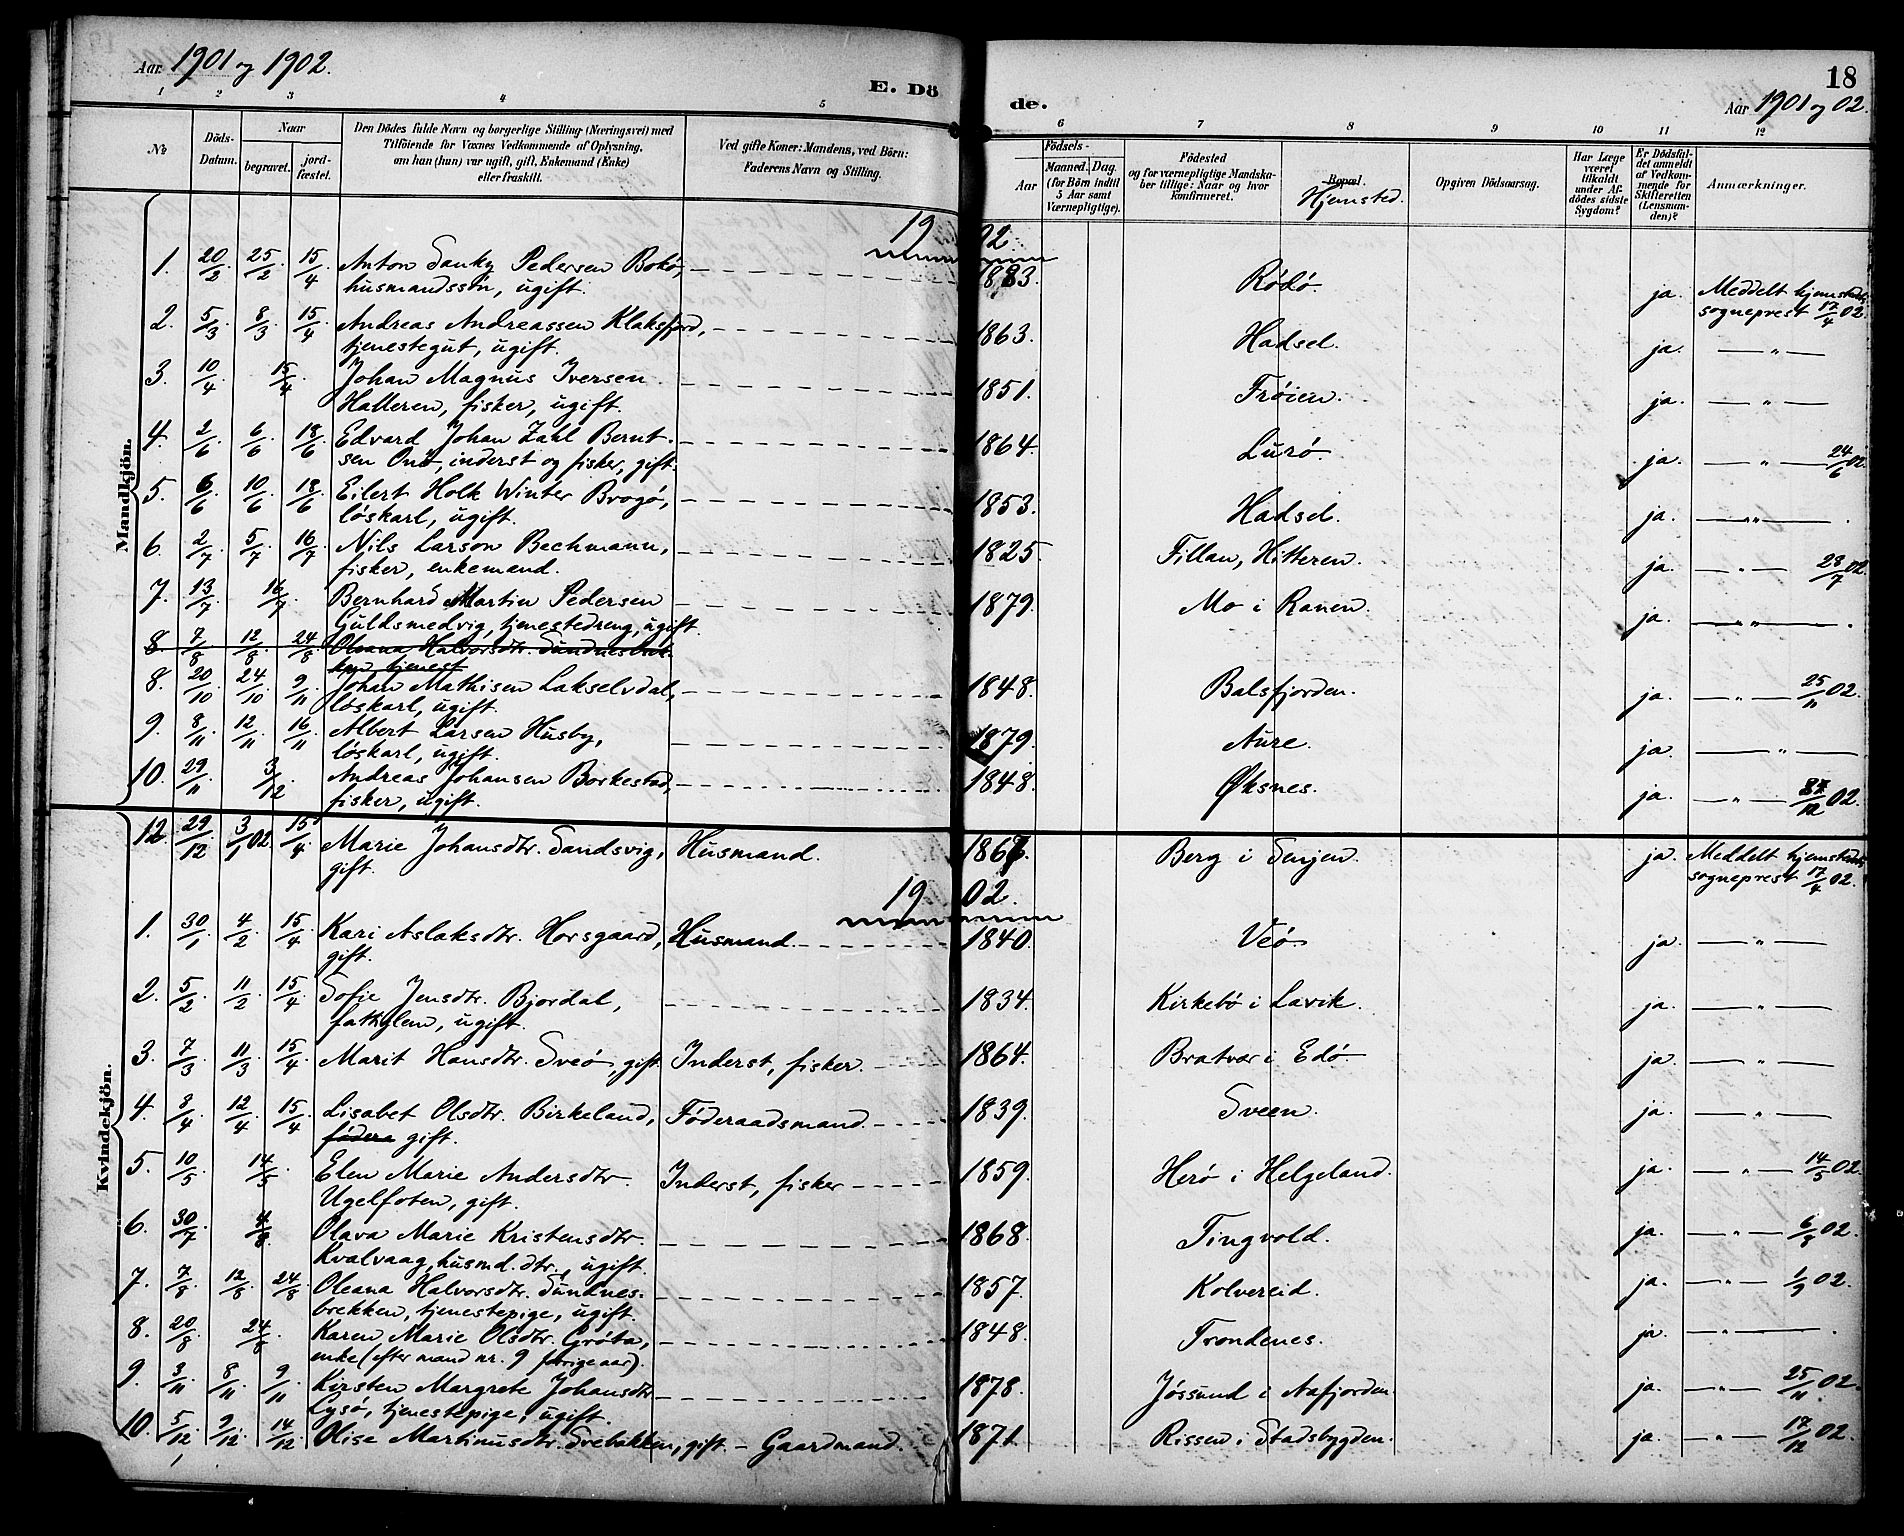 Aar 1901 og 1902.
E. Dö de.
18
Aar 1901 og 02.
1 2 3 4 5 6 7 8 9 10 11 12
No
Döds-Datum.
Naar
begravet.
jord-fæstet.
Den Dödes fulde Navn og borgerlige Stilling (Næringsvei) med
Tilföiende for Voxnes Vedkommende af Oplysning,
om han (hun) var ugift, gift, Enkemand (Enke)
eller fraskilt.
Ved gifte Koner: Mandens, ved Börn:
Faderens Navn og Stilling.
Födsels-
Aar
Maaned. Dag.
(for Börn indtil
5 Aar samt
Værnepligtige).
Födested
og for værnepligtige Mandska-
ber tillige: Naar og hvor
konfirmeret.
Bopæl.
Hjemsted.
Opgiven Dödsaarsag.
Har Læge
været
tilkaldt
under Af-
dödes sidste
Sygdom?
Er Dödsfal-
det anmeldt
af Vedkom-
mende for
Skifteretten
(Lensman-
den)?
Anmærkninger.
Mandkjön.
1902.
1. 20/2 25/2 15/4 Anton Sanky Pedersen Bokö, 1883. Rödö. ja. Meddelt hjemsteds
husmandssön, ugift. sogneprest 17/4 02.
2. 5/3 8/3 15/4 Andreas Andreassen Klaksfjord, 1863. Hadsel. ja. — " —
tjenestegut, ugift.
3. 10/4 15/4 Johan Magnus Iversen 1851. Fröien. ja. — " —
Halleren, fisker, ugift.
4. 2/6 6/6 18/6 Edvard Johan Zahl Bernt- 1864. Lurö. ja. — " — 24/6 02.
sen Onö, inderst og fisker, gift.
5. 6/6 10/6 18/6 Eilert Holk Winter Brogö, 1853. Hadsel. ja. — " —
löskarl, ugift.
6. 2/7 5/7 16/7 Nils Larson Bechmann, 1825. Fillan, Hitteren. ja. — " — 23/7 02.
fisker, enkemand.
7. 13/7 16/7 Bernhard Martin Pedersen 1879. Mo i Ranen. ja. — " —
Guldsmedvig, tjenestedreng, ugift.
8. 7/8 12/8 24/8 Oleana Halvorsdtr. Sundnesbrek-
ken, tjenest
8. 20/10 24/10 9/11 Johan Mathisen Lakselvdal, 1848. Balsfjorden. ja. — " — 25/11 02.
löskarl, ugift.
9. 8/11 12/11 16/11 Albert Larsen Husby, 1879. Aure. ja. — " —
löskarl, ugift.
10. 29/11 3/12 Andreas Johansen Borkestad, 1848. Øksnes. ja. — " — /12 02.
fisker, ugift.
Kvindekjön.
12. 29/12 3/1 02. 15/4 Marie Johansdtr. Sandsvig, Husmand. 1867. Berg i Senjen. ja. Meddelt hjemsteds
gift. sogneprest 17/4 02.
1902.
1. 30/1 4/2 15/4 Kari Aslaksdtr. Horsgaard, Husmand. 1840. Veö. ja. — " —
gift.
2. 5/2 11/2 15/4 Sofie Jensdtr. Bjordal, 1834. Kirkebö i Lavik. ja. — " —
fattiglem, ugift.
3. 7/3 11/3 15/4 Marit Hansdtr. Sveö, gift. Inderst, fisker. 1864. Bratvær i Edö. ja. — " —
4. 8/4 12/4 15/4 Lisabet Olsdtr. Birkeland, Föderaadsmand. 1839. Sveen. ja. — " —
födera gift.
5. 10/5 14/5 Elen Marie Andersdtr. Inderst, fisker 1859. Herö i Helgeland. ja. — " — 14/5 02.
Ugelfoten, gift.
6. 30/7 4/8 Olava Marie Kristensdtr. 1868. Tingvold. ja. — " — 6/8 02.
Kvalvaag, husmd. dtr., ugift.
7. 7/8 12/8 24/8 Oleana Halvorsdtr. Sundnes- 1857. Kolvereid. ja. — " — 1/9 02.
brekken, tjenestepige, ugift.
8. 20/8 24/8 Karen Marie Olsdtr. Gröta, 1848. Trondenes. ja. — " —
enke (efter mand nr. 9 forrige aar).
9. 3/11 8/11 9/11 Kirsten Margrete Johansdtr. 1878. Jössund i Aafjorden. ja. — " — 25/11 02.
Lysö, tjenestepige, ugift.
10. 5/12 9/12 14/12 Olise Martinusdtr. Svebakken, gift. - Gaardmand. 1871. Rissen i Stadsbygden. ja. — " — 17/12 02.